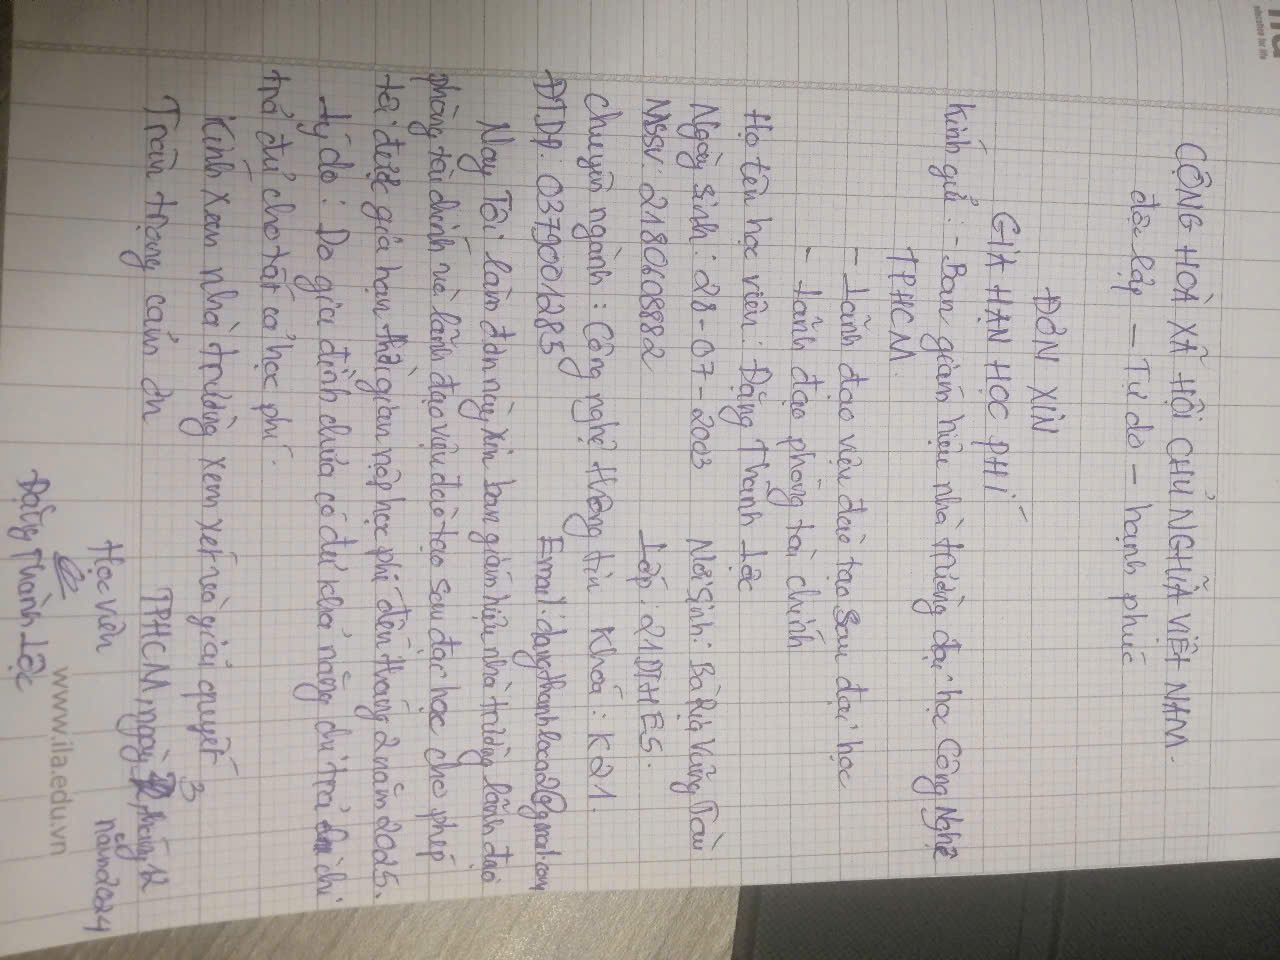 CỘNG HOÀ XÃ HỘI CHỦ NGHĨA VIỆT NAM.
độc lập – Tự do – hạnh phúc
ĐƠN XIN
GIA HẠN HỌC PHÍ
Kính gửi: - Ban giám hiệu nhà trường đại học Công Nghệ
TPHCM.
- Lãnh đạo viện đào tạo sau đại học
- Lãnh đạo phòng tài chính
Họ tên học viên: Đặng Thành Lộc
Ngày sinh: 28-07-2003 Nơi sinh: Bà Rịa Vũng Tàu
MSSV: 2180608882 Lớp: 21DTHE5.
Chuyên ngành: Công nghệ thông tin Khoá: K21.
ĐTDĐ: 0379001285 Email:
Nay Tôi làm đơn này, xin ban giám hiệu nhà trường lãnh đạo
phòng tài chính và lãnh đạo viện đào tạo sau đại học cho phép
tôi được gia hạn thời gian nộp học phí đến tháng 2 năm 2025.
Lý do: Do gia đình chưa có đủ khả năng chi trả chi
trả đủ cho tất cả học phí.
Kính xem nhà trường xem xét và giải quyết
Trân trọng cảm ơn
TPHCM, ngày 3 tháng 12
năm 2024
Học viên
Đặng Thành Lộc
www.ila.edu.vn
education for life